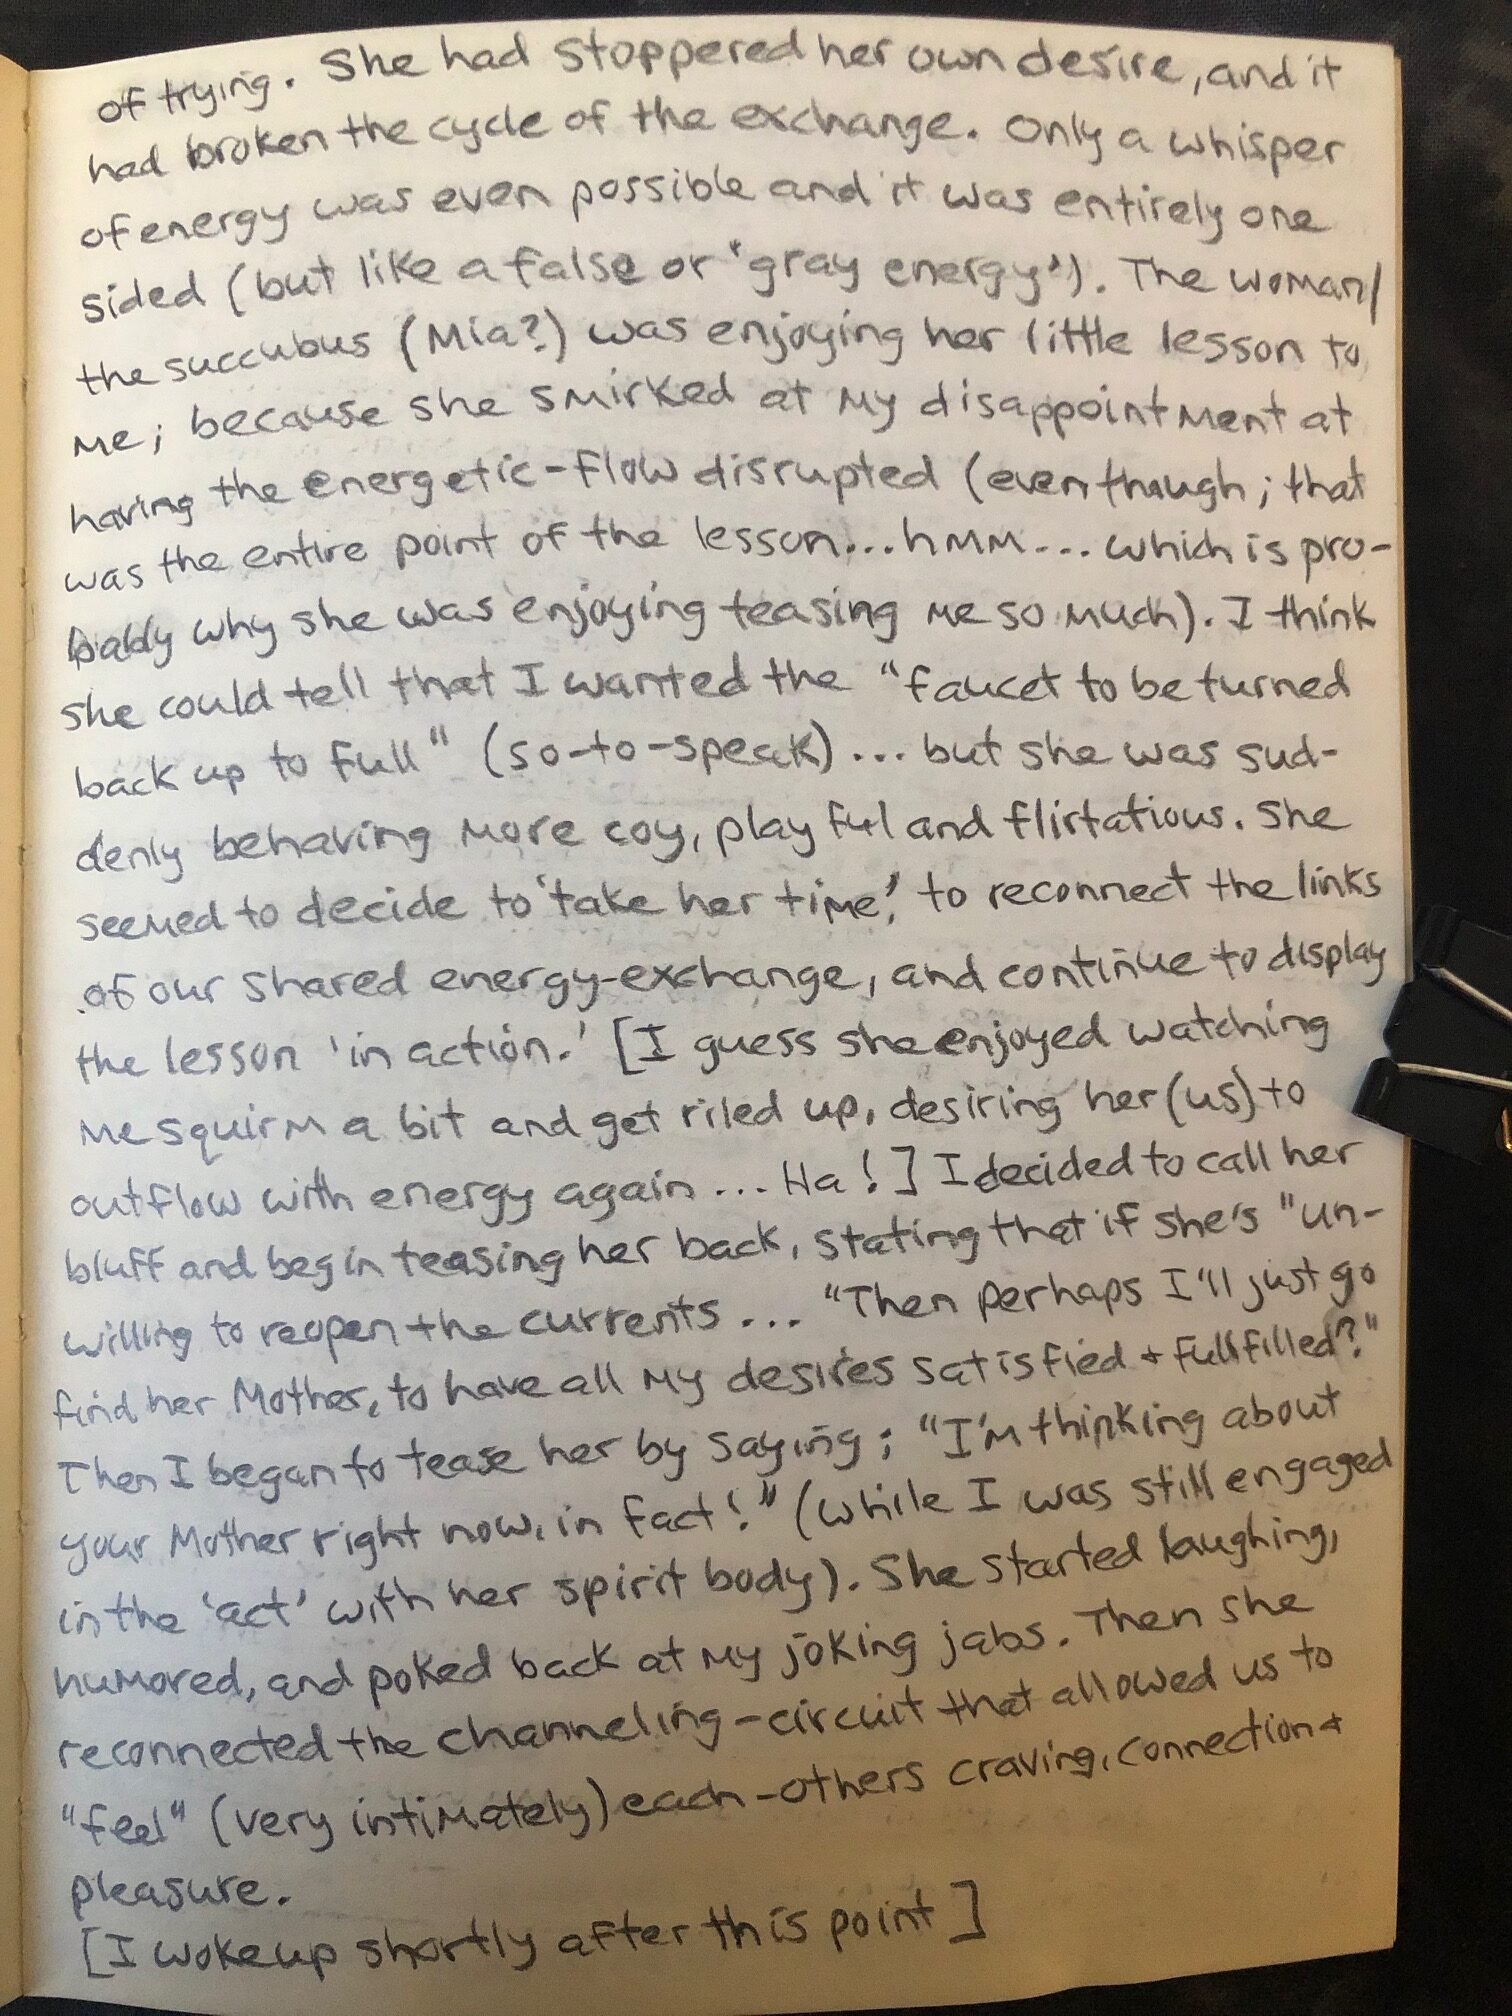 of trying. She had stoppered her own desire, and it
had broken the cycle of the exchange. Only a whisper
of energy was even possible and it was entirely one
sided (but like a false or 'gray energy'). The woman/
the succubus (Mia?) was enjoying her little lesson to
me; because she smirked at my disappointment at
having the energetic-flow disrupted (even though; that
was the entire point of the lesson...hmm... which is pro-
bably why she was enjoying teasing me so much). I think
she could tell that I wanted the "faucet to be turned
back up to full" (so-to-speak)... but she was sud-
denly behaving more coy, playful and flirtatious. She
seemed to decide to 'take her time,' to reconnect the links
of our shared energy-exchange, and continue to display
the lesson 'in action.' [I guess she enjoyed watching
me squirm a bit and get riled up, desiring her (us) to
outflow with energy again ... Ha!] I decided to call her
bluff and begin teasing her back, stating that if she's "un-
willing to reopen the currents ... "Then perhaps I'll just go
find her Mother, to have all my desires satisfied + fullfilled?"
Then I began to tease her by saying; "I'm thinking about
your Mother right now, in fact!" (while I was still engaged
in the 'act' with her spirit body). She started laughing,
humored, and poked back at my joking jabs. Then she
reconnected the channeling-circuit that allowed us to
"feel" (very intimately) each-others craving, connection +
pleasure.
[I woke up shortly after this point]